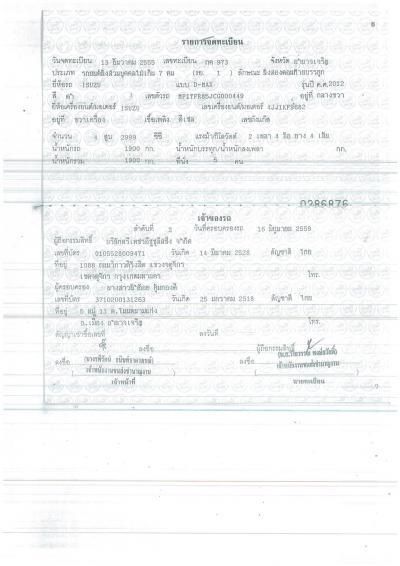 6
รายการจดทะเบียน
วันจดทะเบียน 13 ธันวาคม 2555 เลขทะเบียน กค 973 จังหวัด อำนาจเจริญ
ประเภท รถยนต์นั่งส่วนบุคคลไม่เกิน 7 คน (รย. 1 ) ลักษณะ นั่งสองตอนท้ายบรรทุก
ยี่ห้อรถ ISUZU แบบ D-MAX รุ่นปี ค.ศ.2012
สี เลขตัวรถ MP1TFR85JCG000449 อยู่ที่ กลางขวา
ยี่ห้อเครื่องยนต์/มอเตอร์ ISUZU เลขเครื่องยนต์/มอเตอร์
อยู่ที่ ขวาเครื่อง เชื้อเพลิง ดีเซล เลขถังแก๊ส
จำนวน 4 สูบ 2999 ซีซี แรงม้า/กิโลวัตต์ 2 เพลา 4 ล้อ ยาง 4 เส้น
น้ำหนักรถ 1900 กก. น้ำหนักบรรทุก/น้ำหนักลงเพลา กก.
น้ำหนักรวม 1900 กก. ที่นั่ง 5 คน
0286876
เจ้าของรถ
ลำดับที่ 2 วันที่ครอบครองรถ 16 มิถุนายน 2559
ผู้ถือกรรมสิทธิ์ บริษัทตรีเพชรอีซูซุลิสซิ่ง จำกัด
เลขที่บัตร 0105528009471 วันเกิด 14 มีนาคม 2528 สัญชาติ ไทย
ที่อยู่ 1088 ถนนวิภาวดีรังสิต แขวงจตุจักร
เขตจตุจักร กรุงเทพมหานคร โทร.
ผู้ครอบครอง นางสาว
เลขที่บัตร 3710200131263 วันเกิด 25 มกราคม 2518 สัญชาติ ไทย
ที่อยู่ 5 หมู่ 13 ต.โนนหนามแท่ง
อ.เมือง อำนาจเจริญ โทร.
สัญญาเช่าซื้อเลขที่ ลงวันที่
ลงชื่อ ผู้ถือกรรมสิทธิ์
ลงชื่อ ลงชื่อ
เจ้าพนักงานขนส่งชำนาญงาน เจ้าพนักงานขนส่งชำนาญงาน
เจ้าหน้าที่ นายทะเบียน